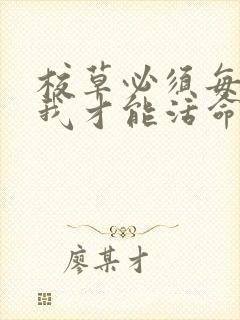 校草必须每
我才能活命
廖某才